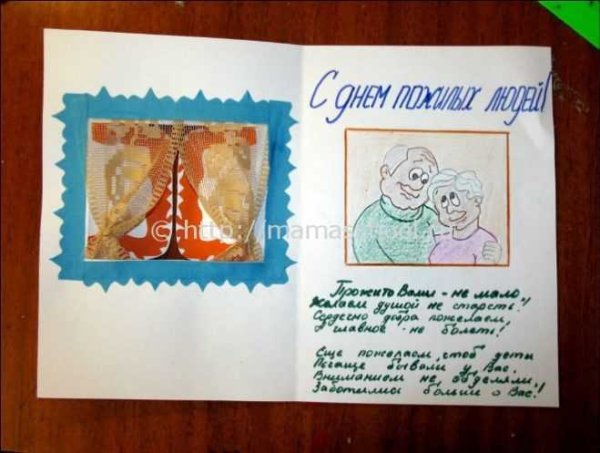 С днем пожилых людей!
©http://mamas
Прожито Вами - не мало
Желаем душой не стареть!
Сердечно добра пожелаем,
А главное - не болеть!
Еще пожелаем, чтоб дети
Почаще бывали у Вас.
Вниманием не обделяли,
Заботились больше о Вас!